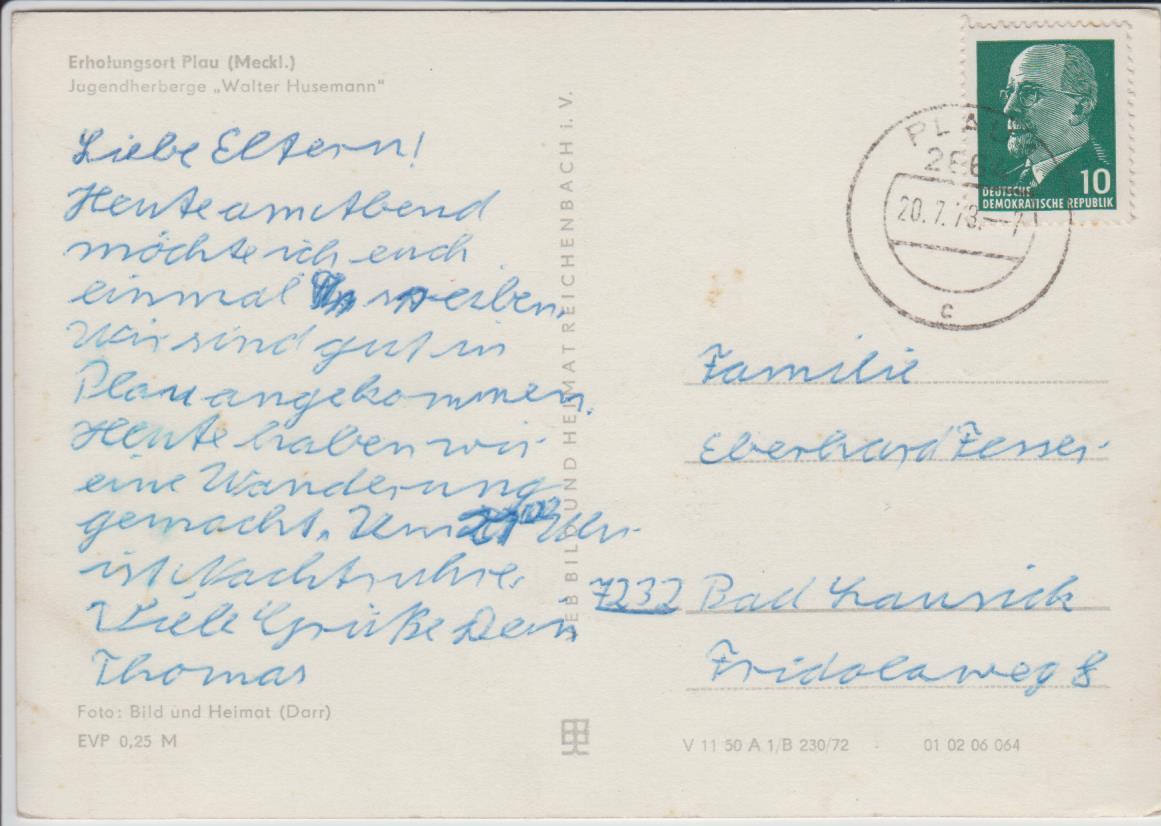 Erholungsort Plau (Meckl.)
Jugendherberge „Walter Husemann"
Liebe Eltern!
Heute am Abend
möchte ich euch
einmal schreiben.
Wir sind gut in
Plau angekommen.
Heute haben wir
eine Wanderung
gemacht. Um Uhr
ist Nachtruhe.
Viele Grüße Dein
Thomas
Foto: Bild und Heimat (Darr)
EVP 0,25 M
VEB BILD UND HEIMAT REICHENBACH i. V.
PLAU
286
20.7.73.–7
c
10
DEUTSCHE
DEMOKRATISCHE REPUBLIK
Familie
Eberhard
7232 Bad Lausick
Fridolaweg 8
V 11 50 A 1/B 230/72
01 02 06 064